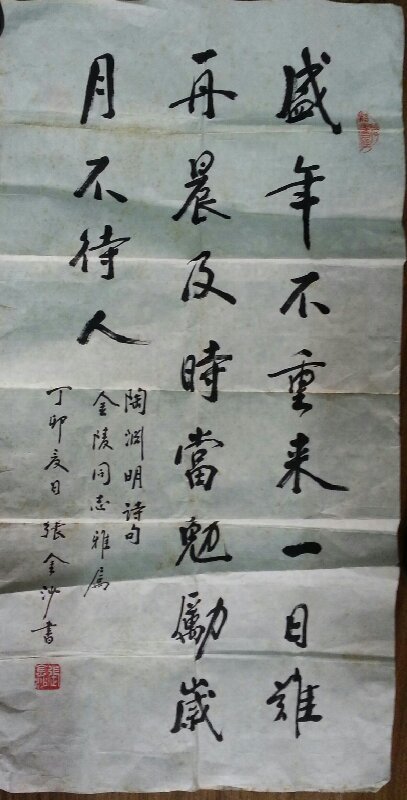 盛年不重来一日难
再晨及時當勉勵歲
月不待人
陶淵明詩句
金陵同志雅属
丁卯夏日張金沙書